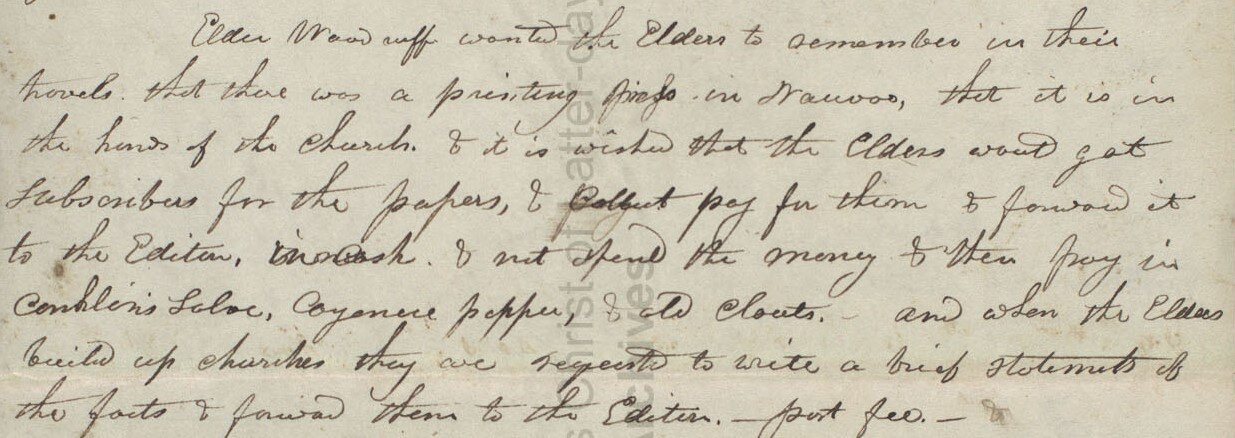 Elder Woodruff wanted the Elders to remember in their
travels. that there was a printing press in Nauvoo, that it is in
the hands of the Church. & it is wished that the Elders would get
Subscribers for the papers, & Collect pay for them & forward it
to the Editor, in cash. & not spend the money & then pay in
Conklin's Salve, Cayenne pepper, & old Clouts. — and when the Elders
build up churches they are requested to write a brief statements of
the facts & forward them to the Editor. — post free. —
s Christ of Latter-day
chives